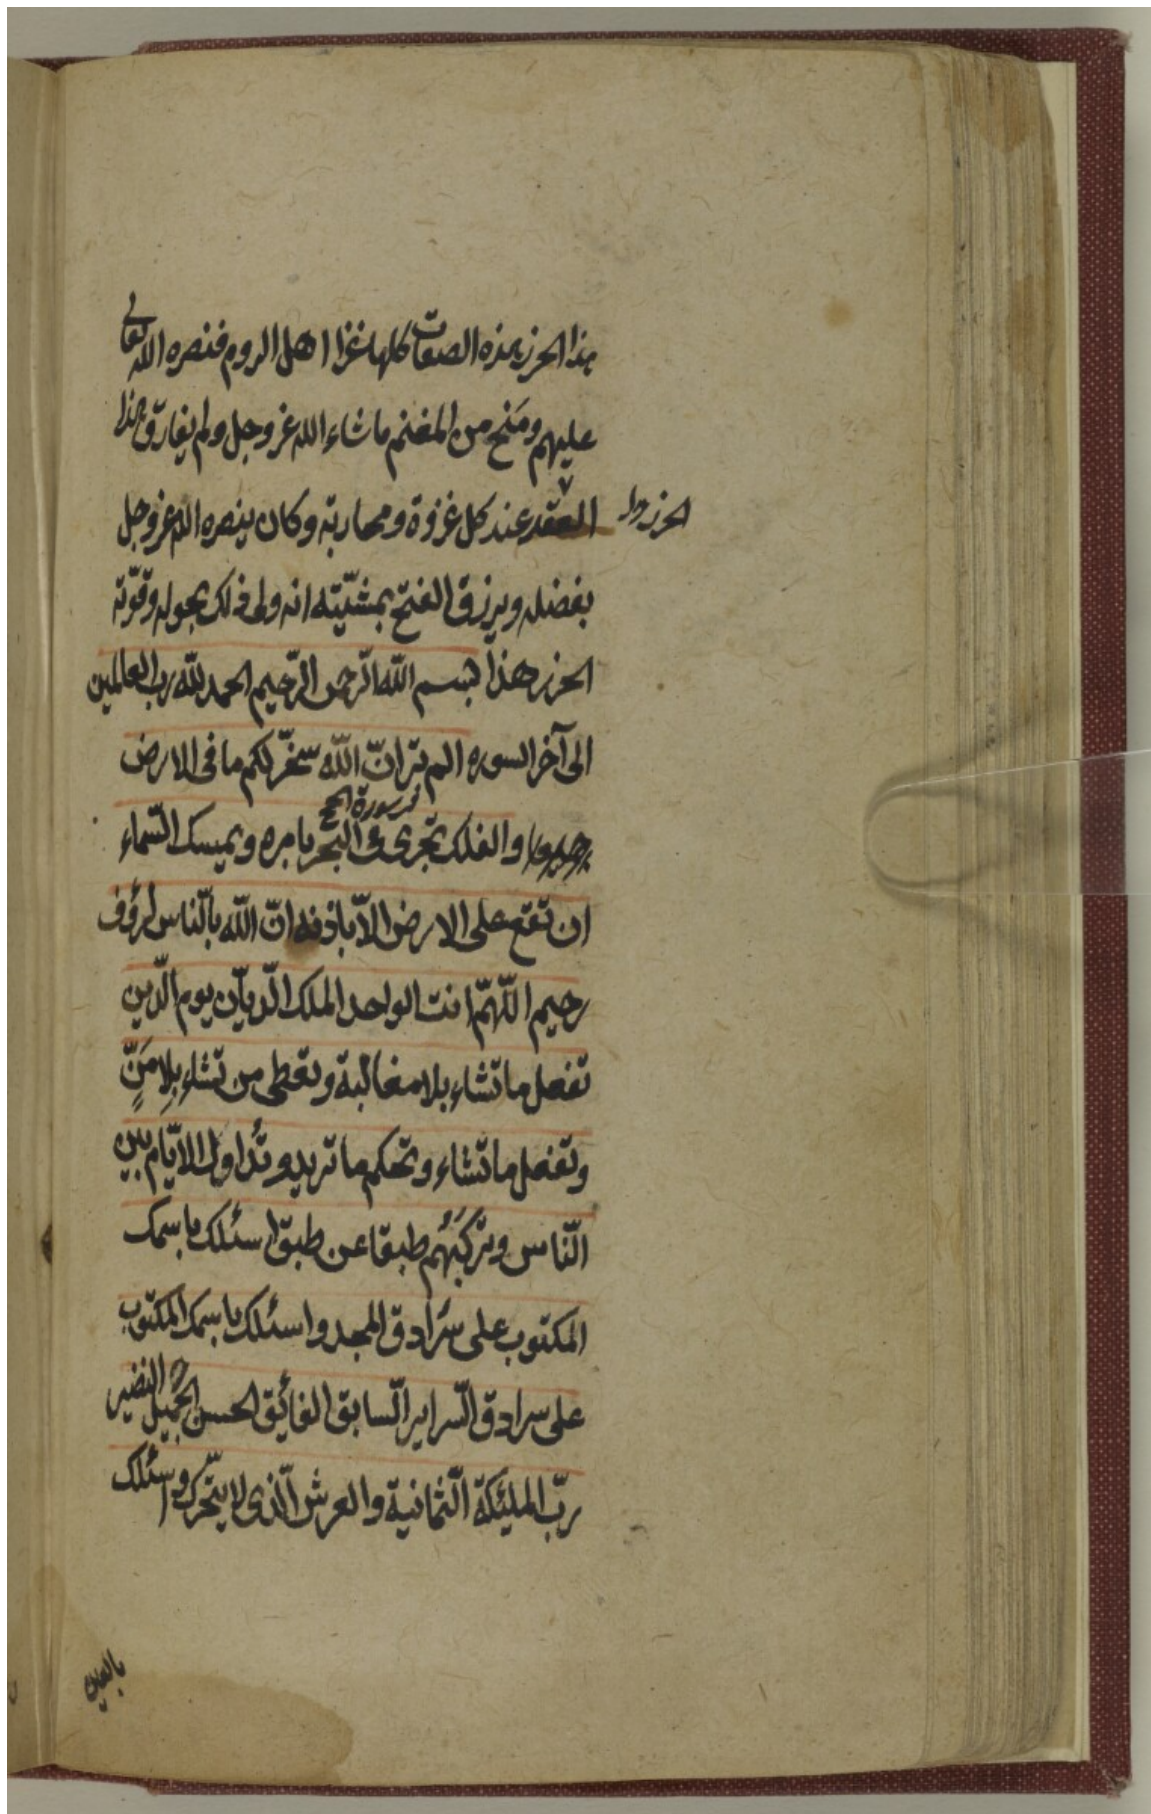 هذا الحرز بهذه الصفات كلها غزا اهل الروم فنصره الله تعالى
عليهم ومَنح من المغنم ما شاء الله عز وجل ولم يفارق هذا
العقد عند كل غزوة ومحاربته وكان ينصره الله عز وجل
الحرز
بفضله ويرزق الفتح بمشيّته انه ولى ذلك بحوله وقوّته
الحرز هذا بسم الله الرّحمن الرّحيم الحمد لله رب العالمين
الى آخر السوره الم تر انّ اللّه سخّر لكم ما فى الارض
سورة الحج
والفلك تجرى فى البحر بامره ويمسك السّماء
ان تقع على الارض الاّ باذنه انّ اللّه بالنّاس لرؤف
رحيم اللّهمّ انت الواحد الملك الدّيّان يوم الدّين
تفعل ما تشاء بلا مغالبة وتعطى من تشاء بِلا مَنٍّ
وتفعل ما تشاء وتحكم ما تريد وتُداول الايّام بين
النّاس وتركبَهُم طبقا عن طبق اسئلك باسمك
المكتوب على سُرادق المجد واسئلك باسمك المكتوب
على سرادق السّراير السّابق الفائق الحسن الجميل النضير
ربّ الملئكة الثّمانية والعرش الّذى لا يتحّرك واسئلك
بالعين